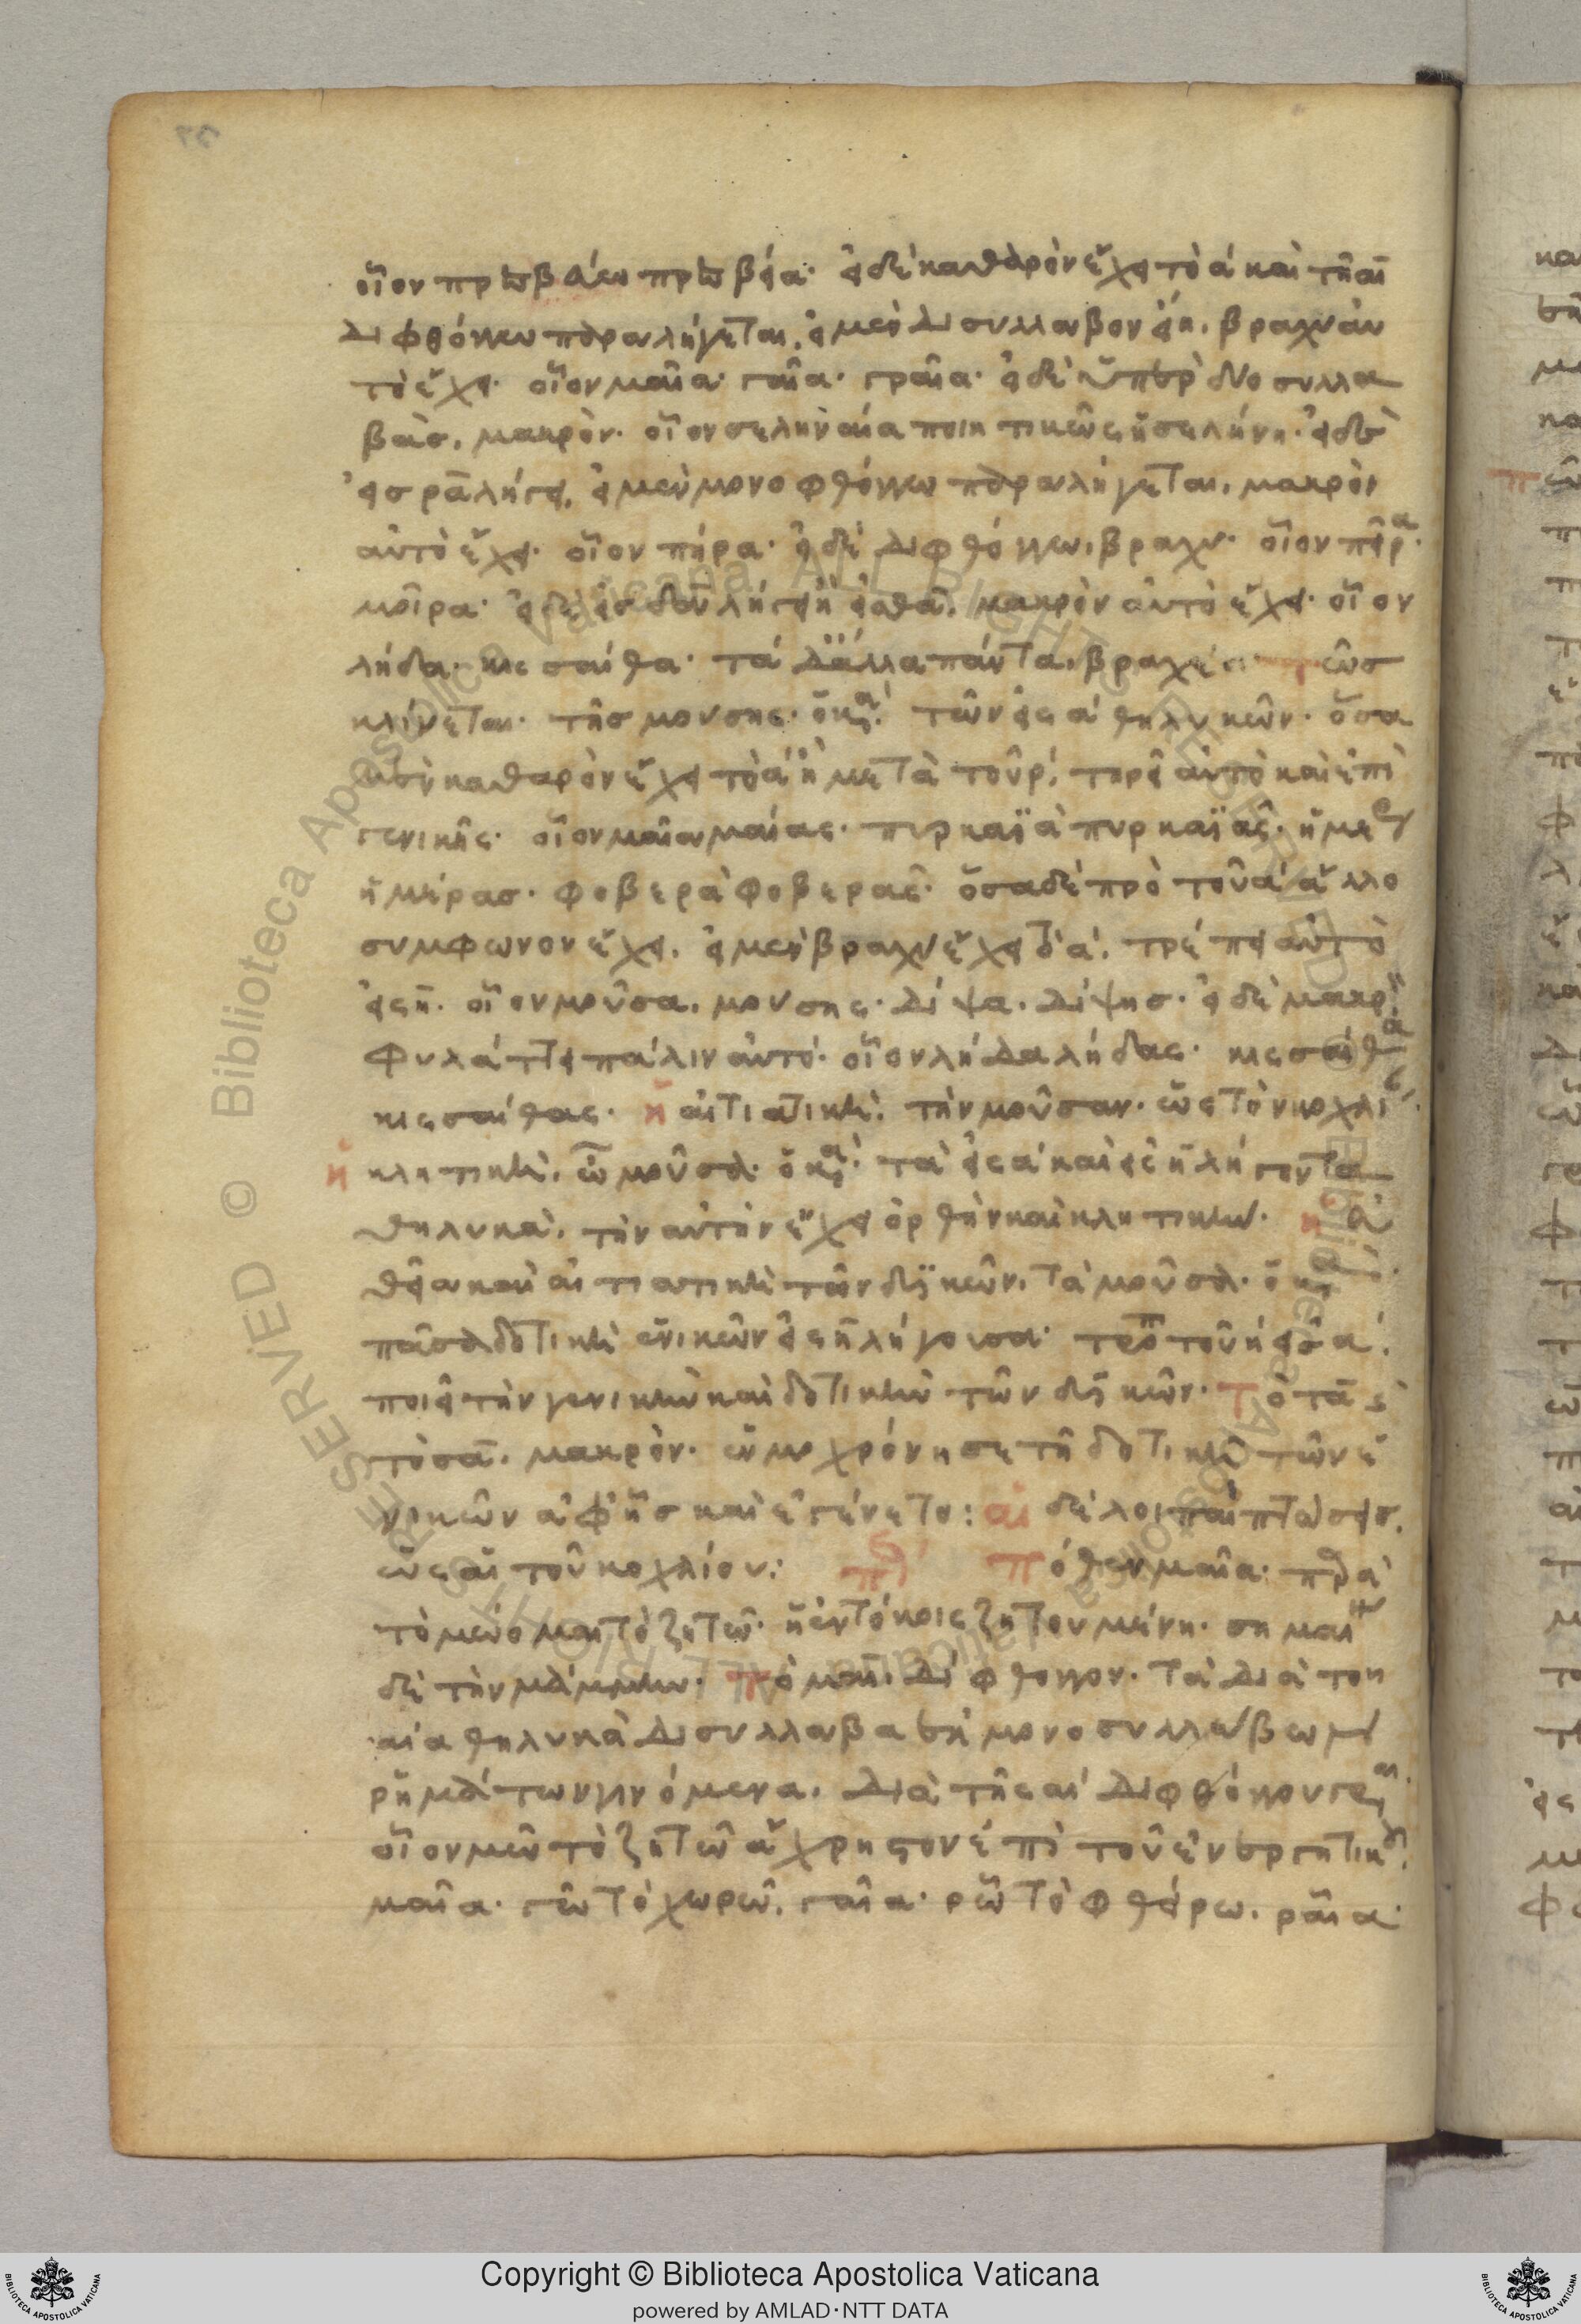 οἷον πρεσβεύω πρεσβεία· εἰ δὲ καθαρὸν ἔχει τὸ ά καὶ τῆ αι
διφθόγγω παραλήγεται, εἰ μὲν δισύλλαβον εἴη, βραχὺ αυ
τὸ ἔχει· οἷον μαῖα· γαῖα· γραῖα· εἰ δὲ ὑπὲρ δύο συλλα
βὰσ, μακρὸν· οἷον σεληναία ποιητικῶς ἡ σελήνη· εἰ δὲ
εἰσ ρα λήγει, εἰ μὲν μονοφθόγγω παραλήγεται, μακρὸν
αὐτὸ ἔχει· οἷον πήρα· εἰ δὲ διφθόγγω, βραχυ· οἷον πεῖρα·
μοῖρα· εἰ δὲ εἰσ δα λήγει ἢ εἰσ θα, μακρὸν αὐτὸ ἔχει· οἷον
λήδα· κισσαίθα· τὰ δὲ ἄλλα πάντα, βραχέα πῶσ
κλίνεται· τῆσ μούσης· ὁ κανών· τῶν εἰς α θηλυκῶν· ὅσα
μὲν καθαρὸν ἔχει τὸ ά ἢ μετὰ τοῦ ρ, τηρεῖ αὐτὸ καὶ ἐπὶ
γενικῆς· οἷον μαῖα μαίας· πυρκαϊὰ πυρκαϊᾶς· ἡμέρα
ἡμέρασ· φοβερὰ φοβερᾶς· ὅσα δὲ πρὸ τοῦ ά ἄλλο
σύμφωνον ἔχει, εἰ μὲν βραχὺ ἔχει τὸ ά, τρέπει αὐτὸ
εἰς η· οἷον μοῦσα, μούσης· δίψα, δίψησ· εἰ δὲ μακρὸν
φυλάττει πάλιν αὐτό· οἷον λήδα λήδας· κισσαίθα
κισσαίθας· ἡ αἰτιατικὴ, τὴν μοῦσαν· ὡς τὸν κοχλίαν·
ἡ κλητικὴ, ὦ μοῦσα· ὁ κανών· τὰ εἰς α καὶ εἰς η λήγοντα
θηλυκὰ, τὴν αὐτὴν ἔχει ὀρθὴν καὶ κλητικὴν· ἡ εὐ
θεῖα καὶ αἰτιατικὴ τῶν δυϊκῶν, τὰ μούσα· ὁ κανών·
πᾶσα δοτικὴ ἑνικῶν εἰς η λήγουσα· τροπῆ τοῦ η εἰσ α,
ποιεῖ τὴν γενικὴν καὶ δοτικὴν τῶν δυϊκῶν· τὸ τας
τὸ σα, μακρὸν· ἐμοχρόνησε τῆ δοτικῆ τῶν ἑ
νικῶν ἀφ' ἧσ καὶ ἐγένετο: αἱ δὲ λοιπαὶ πτώσεισ,
ὡς αἱ τοῦ κοχλίου: πόθεν μαῖα· παρὰ
τὸ μῶ μαι τὸ ζητῶ· ἡ ἐν τόκοις ζητουμένη· σημαίνει
δὲ τὴν μάμμην· τὸ μαι, δίφθογγον· τὰ διὰ του
αια θηλυκὰ δισύλλαβα ἀπὸ μονοσυλλάβων
ῥημάτων γινόμενα, διὰ τῆς αι διφθόγγου γράφεται·
οἷον μῶ τὸ ζητῶ ἄχρηστον ἐπὶ τοῦ ἐνεργητικοῦ,
μαῖα· γῶ τὸ χωρῶ, γαῖα· ρῶ τὸ φθείρω, ραῖα·
Copyright © Biblioteca Apostolica Vaticana
powered by AMLAD·NTT DATA